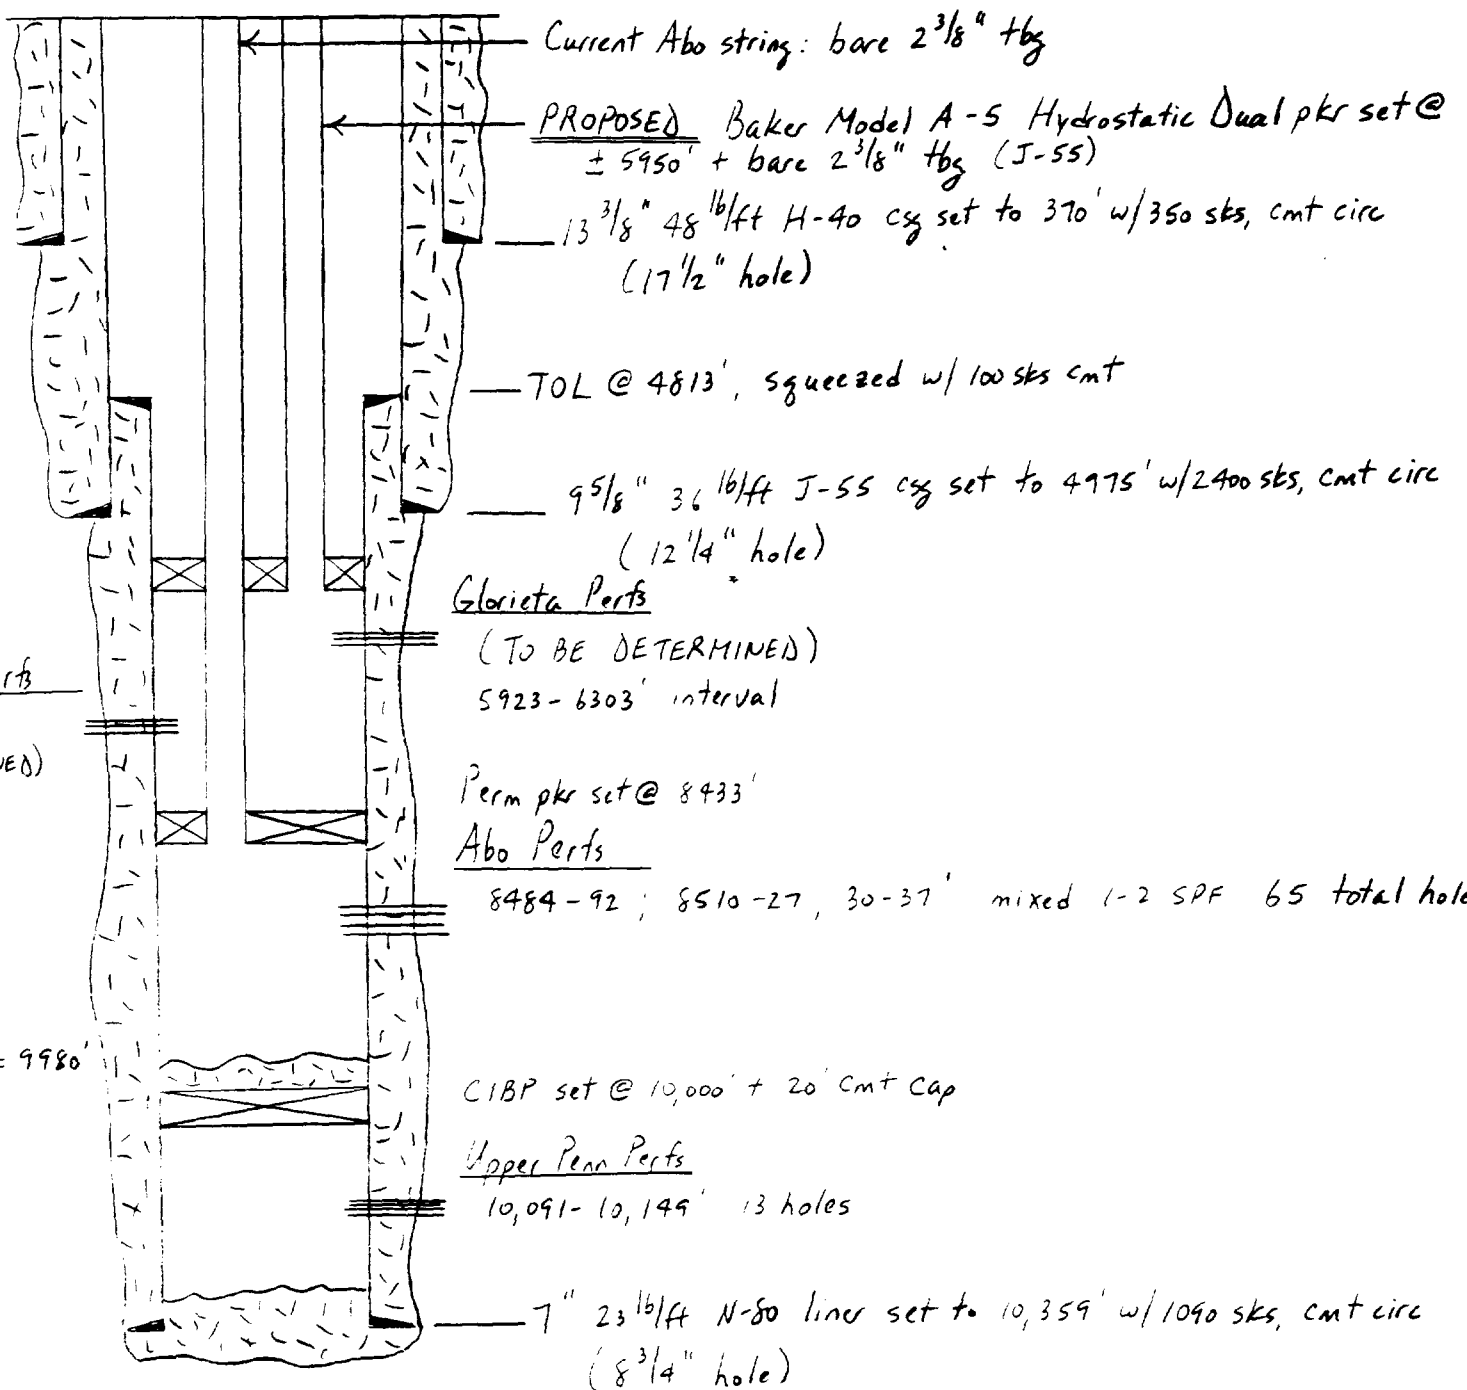 Current Abo string: bare 2 3/8" tbg
PROPOSED Baker Model A-5 Hydrostatic Dual pkr set @
± 5950' + bare 2 3/8" tbg (J-55)
13 3/8" 48 lb/ft H-40 csg set to 370' w/350 sks, cmt circ
(17 1/2" hole)
TOL @ 4813', squeezed w/ 100 sks cmt
9 5/8" 36 lb/ft J-55 csg set to 4975' w/2400 sks, cmt circ
(12 1/4" hole)
Glorieta Perfs
(TO BE DETERMINED)
5923-6303' interval
rfs
NED)
Perm pkr set @ 8433'
Abo Perfs
8484-92; 8510-27, 30-37' mixed 1-2 SPF 65 total hole
= 9980'
CIBP set @ 10,000' + 20' cmt cap
Upper Penn Perfs
10,091-10,149' 13 holes
7" 23 lb/ft N-80 liner set to 10,359' w/1090 sks, cmt circ
(8 3/4" hole)